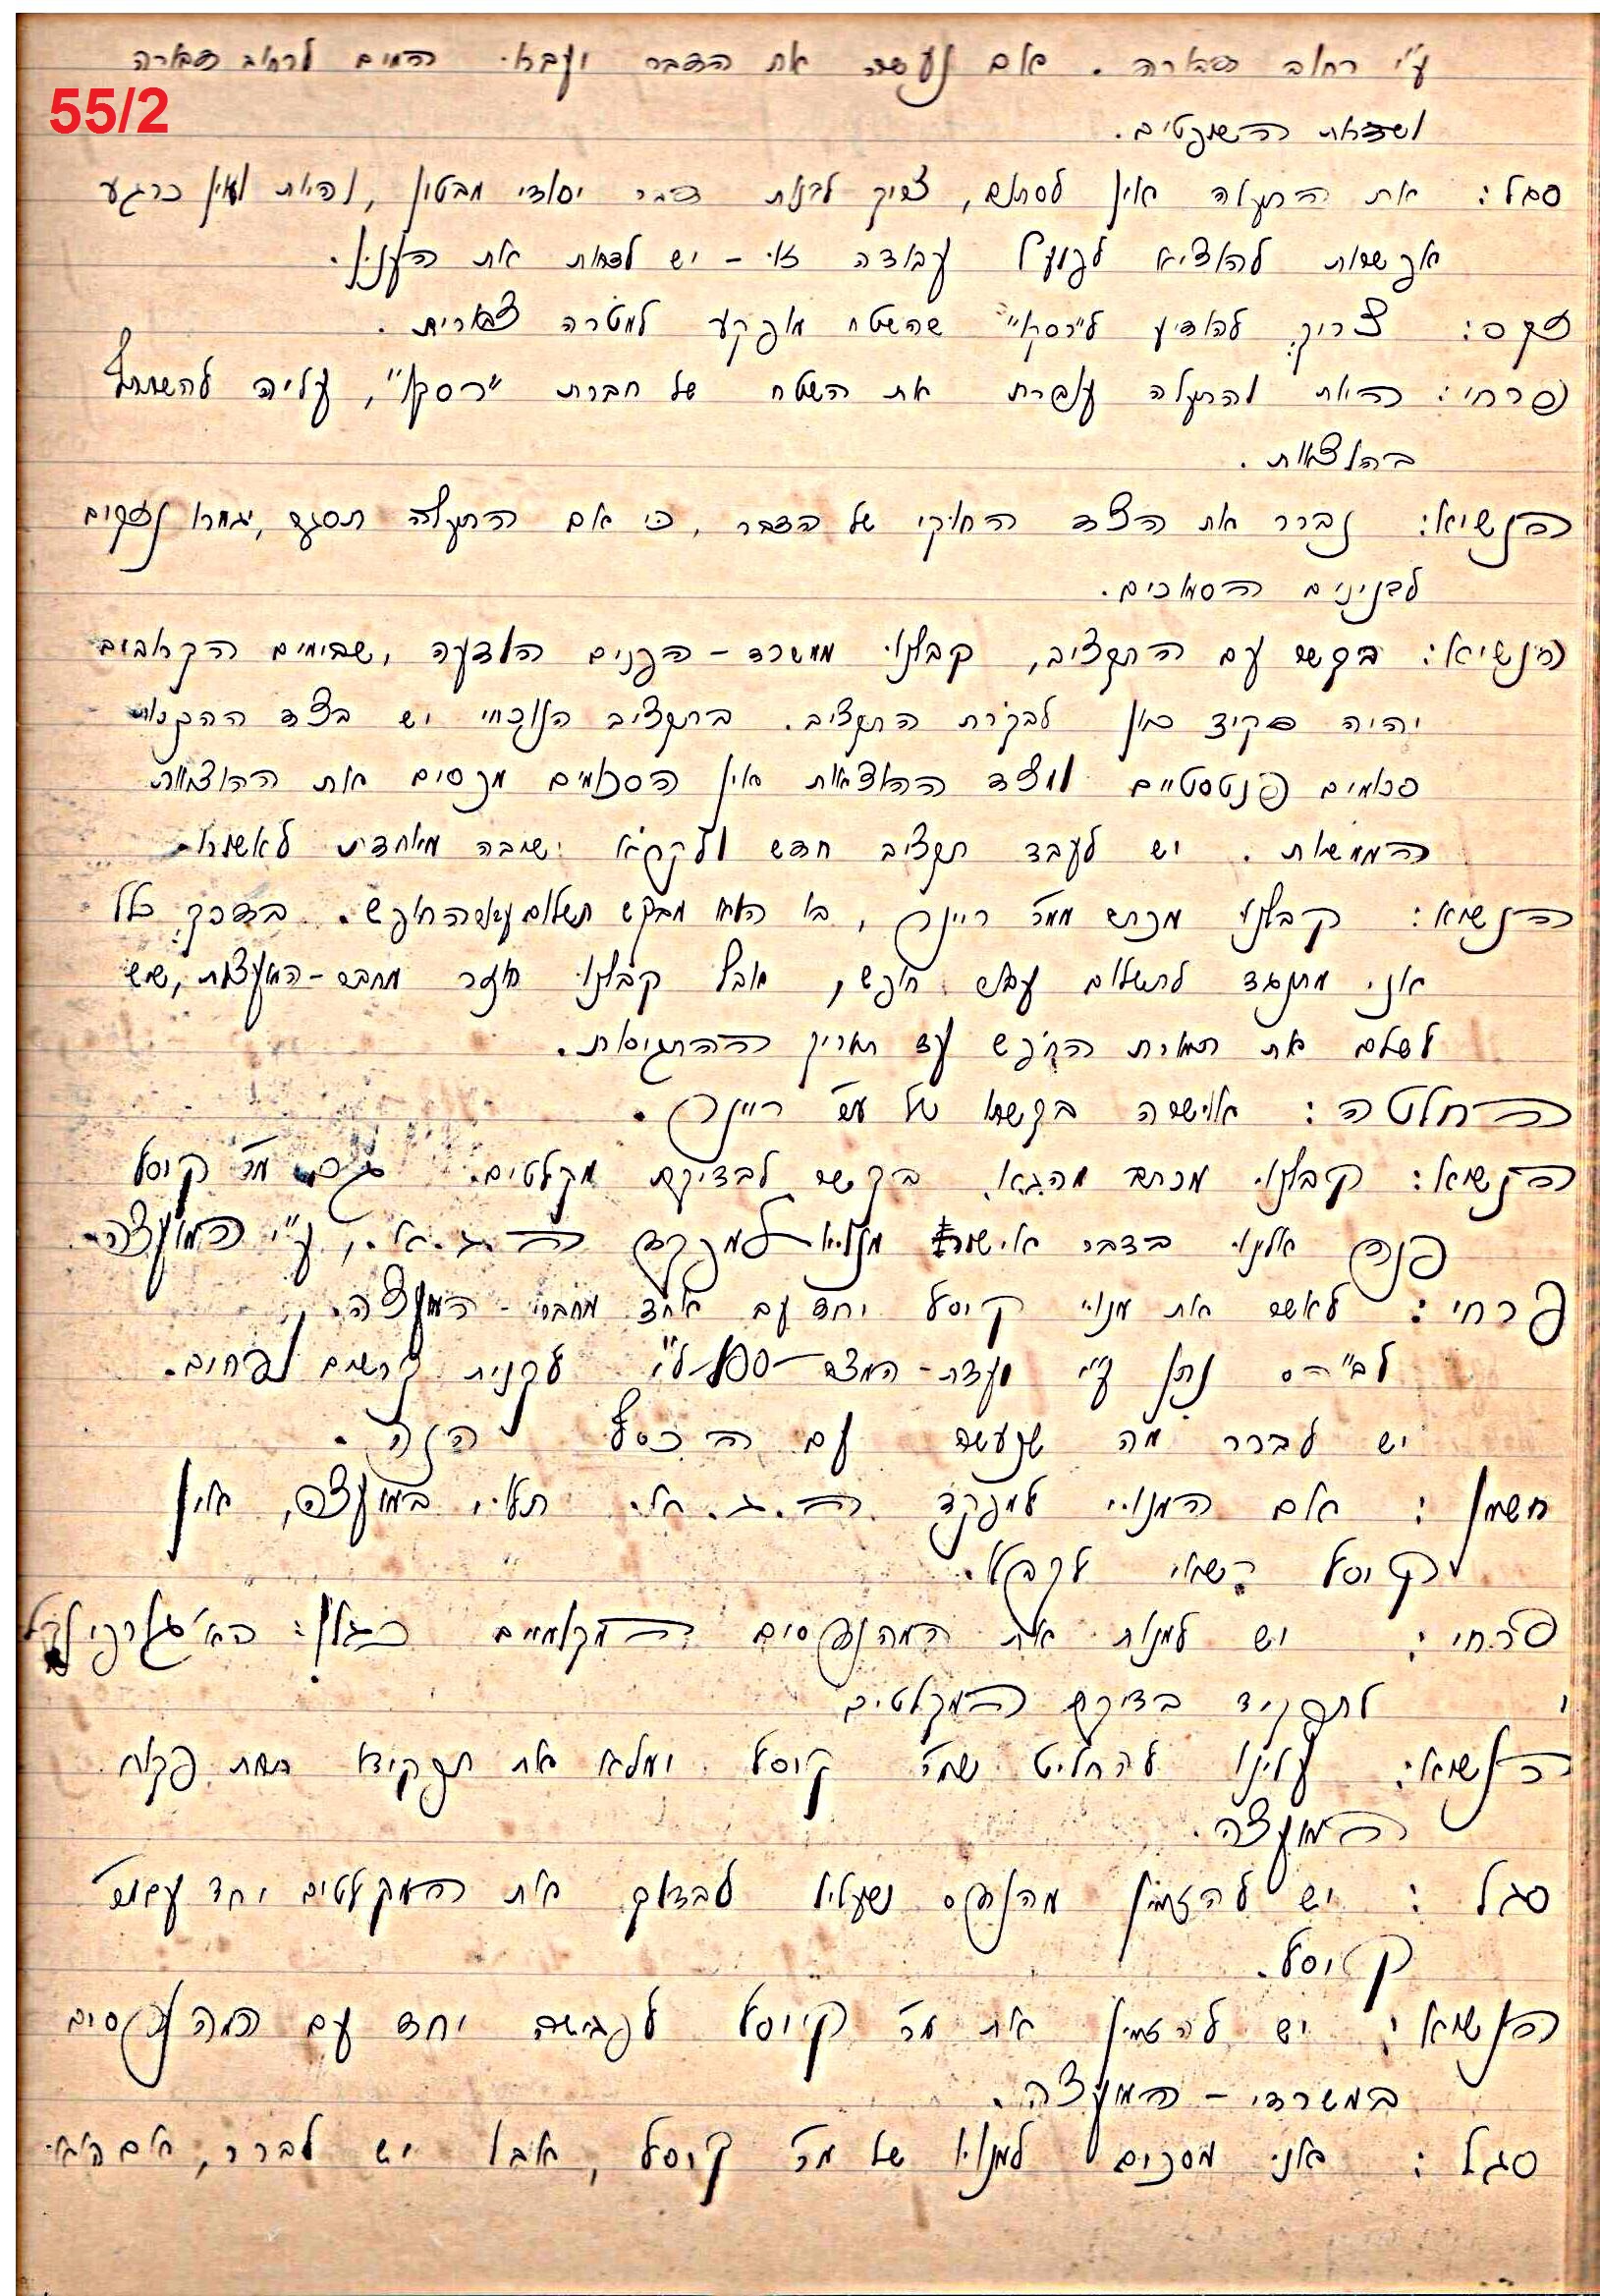 ע"י רחוב הבארה. אם נעשה את הדבר יעברו המים לרחוב הבארה
55/2
ושדות השוקטים.
סגל: את התעלה אין לסתום, צריך לבנות דבר יסודי מבטון, והיות ואין כרגע
אפשרות להוציא לפועל עבודה זו - יש לדחות את הענין.
צריך להודיע ל"רסקו" שהשטח מופקע למטרה צבורית.
פרחי: היות והתעלה עוברת את השטח של חברת "רסקו", עליה להשתתף
בהוצאות.
הנשיא: נברר את הצד החוקי של הדבר, כי אם התעלה תסגר, יגרמו נזקים
לבנינים הסמוכים.
הנשיא: בקשר עם התקציב, קבלנו ממשרד-הפנים הודעה, שבימים הקרובים
יהיה פקיד כאן לבקרת התקציב. בתקציב הנוכחי יש בצד ההכנסות
סכומים פנטסטיים ובצד ההוצאות אין הסכומים מכסים את ההוצאות
הממשיות. יש לעבד תקציב חדש ולקרוא ישיבה מיוחדת לאשורו.
הנשיא: קבלנו מכתב ממר ריינר, בו הוא מבקש תשלום עבור החופש. בדרך כלל
אני מתנגד לתשלום עבור חופש, אבל קבלנו חוזר ממרכז-המועצות, שיש
לשלם את תמורת החופש עד תאריך ההתגיסות.
החלטה: אושרה בקשתו של מר ריינר.
הנשיא: קבלנו מכתב מהג"א. בקשר לבדיקת מקלטים. מר קויסל
פנה אלינו בדבר אישור מנויו למפקד ה.ג.א., ע"י המועצה.
פרחי: לאשר את מנוי קויסל יחד עם אחד מחברי-המועצה.
לבי"ס נתן ע"י ועדת-המצב 100 ל"י לקנית קרשים ופחים.
יש לברר מה שנעשה עם הכסף הזה.
חשמן: אם המנוי למפקד ה.ג.א. תלוי במועצה, אין
קויסל רשאי לקבלו.
פרחי: יש למנות את המהנדסים המקומיים כגון:
לתפקיד בדיקת המקלטים
הנשיא: עלינו להחליט שמר קויסל ימלא את תפקידו תחת פקוח
המועצה.
סגל: יש להזמין מהנדס שעליו לבדוק את המקלטים יחד עם מר
קויסל.
הנשיא: יש להזמין את מר קויסל לפגישה יחד עם המהנדסים
במשרדי-המועצה.
סגל: אני מסכים למנויו של מר קויסל, אבל יש לברר, אם הוא